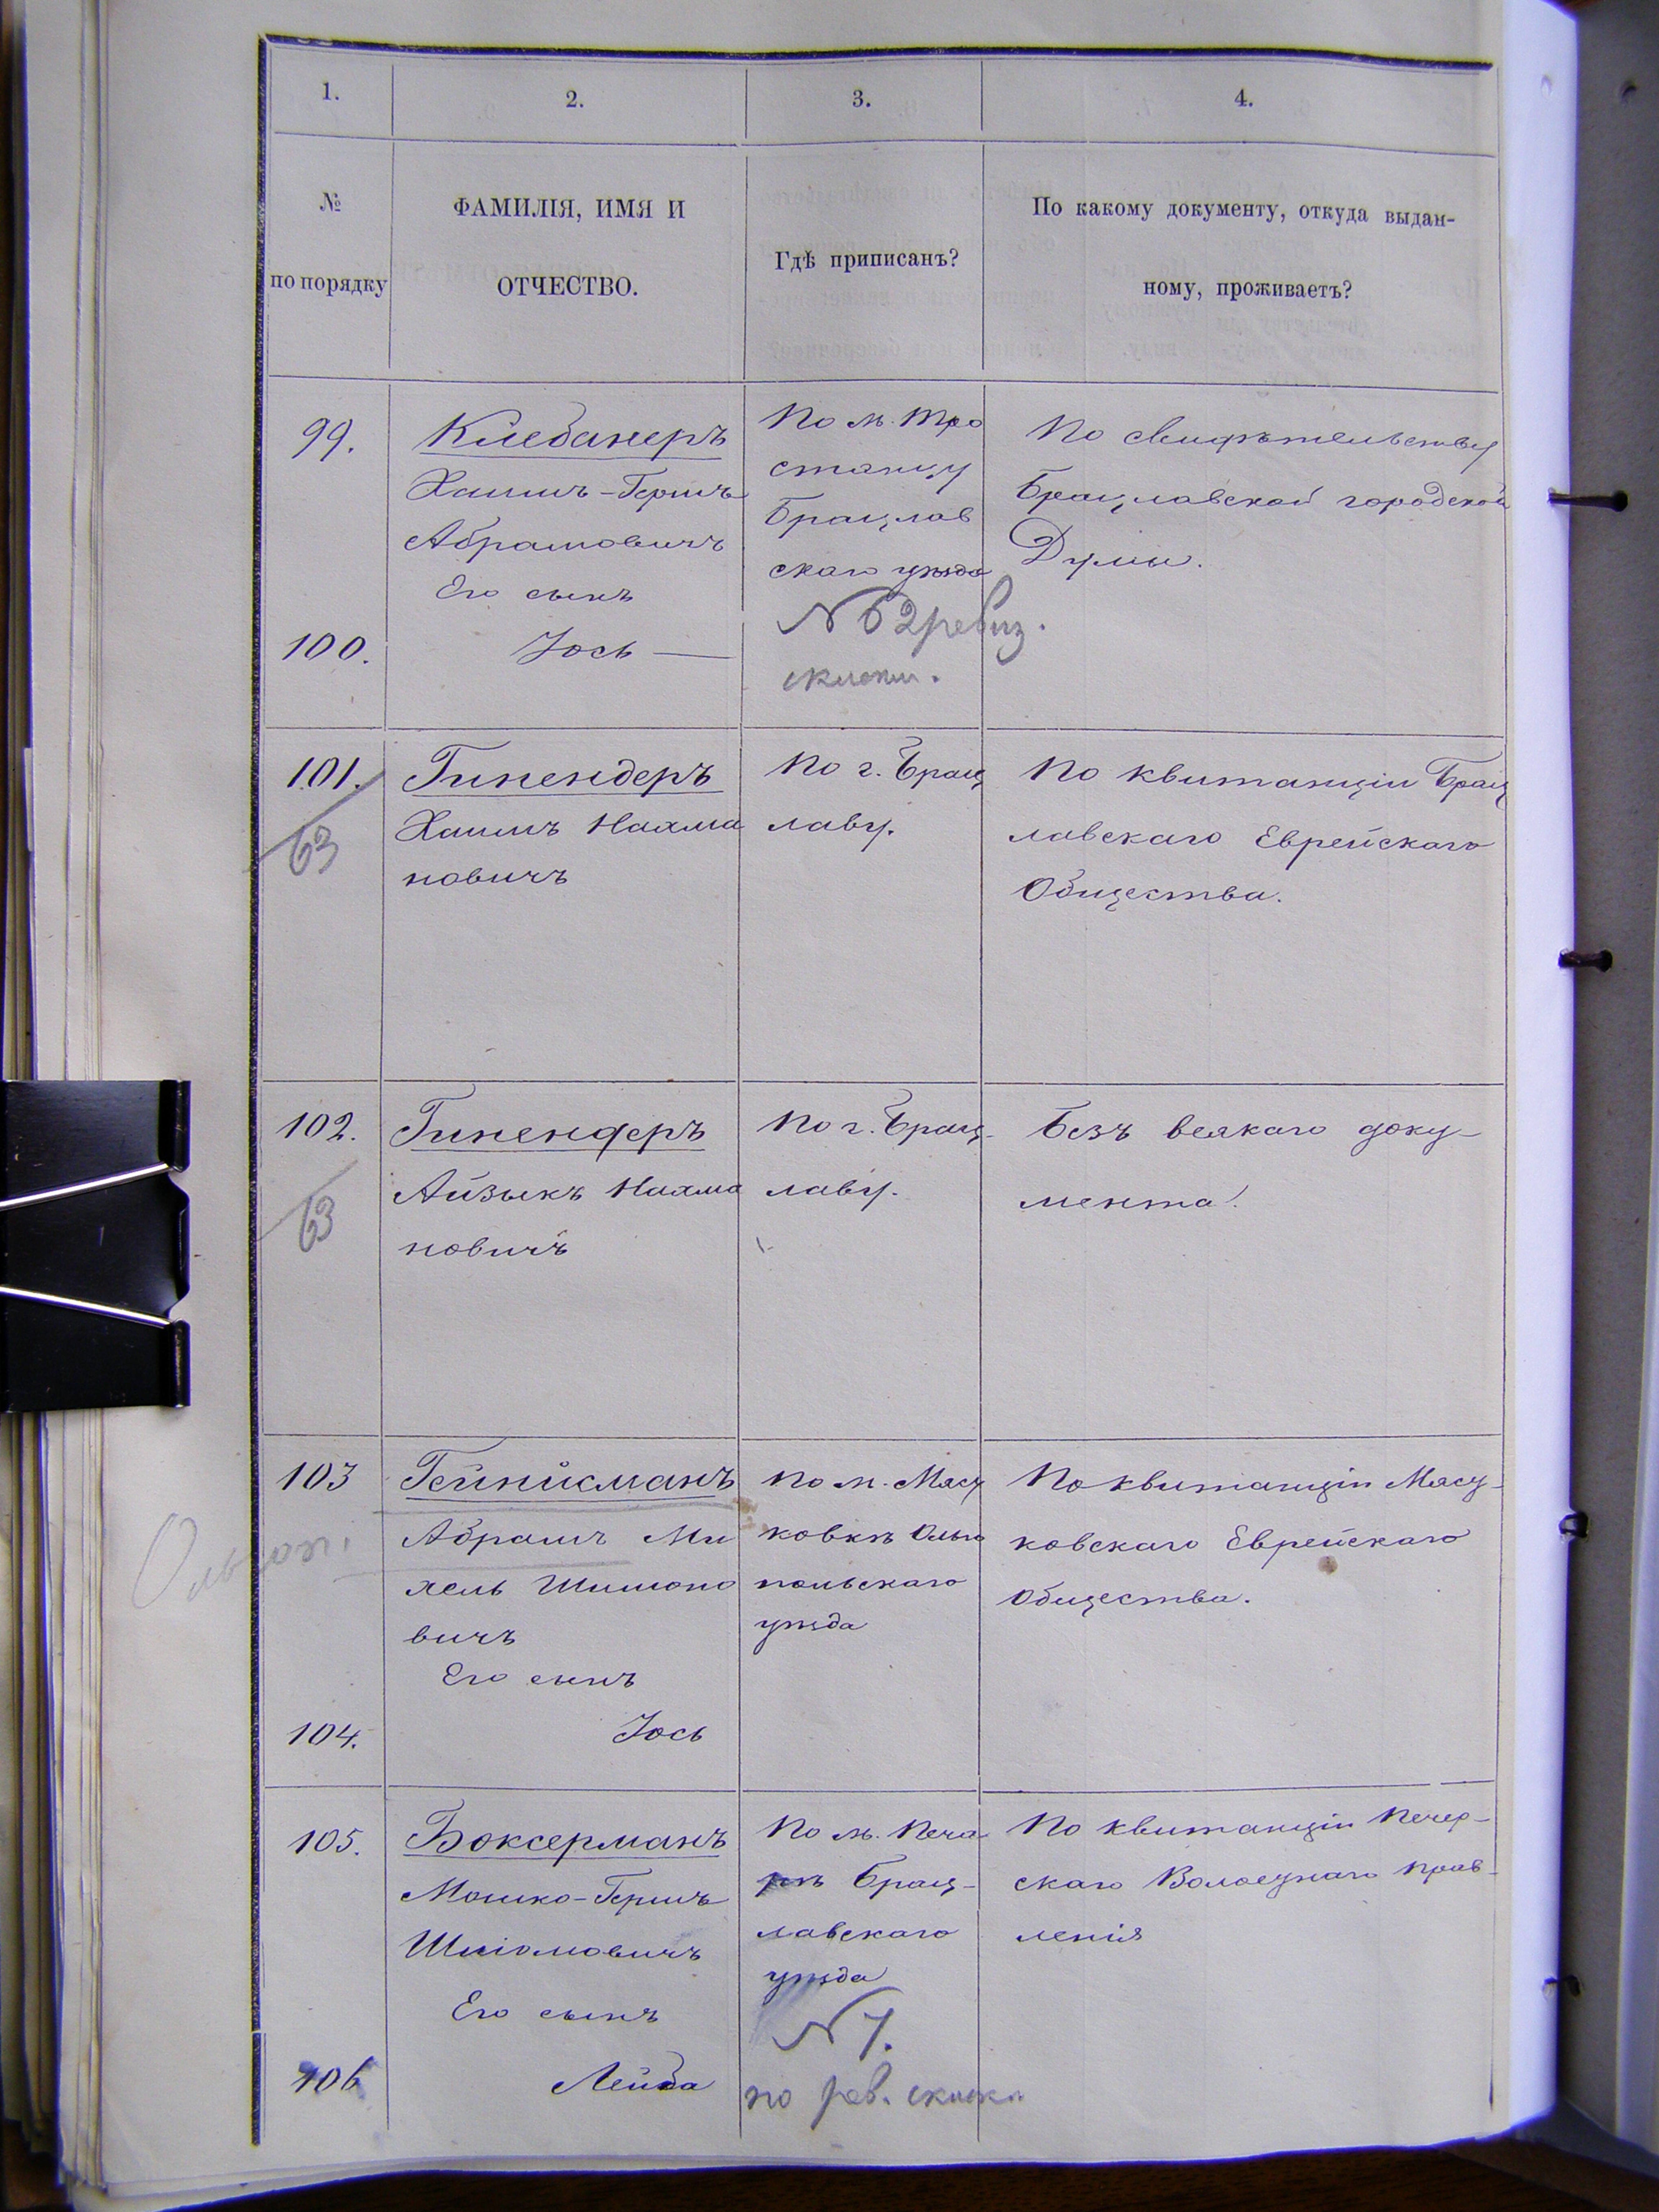 1.
2.
3.
4.
№
по порядку
ФАМИЛІЯ, ИМЯ И
ОТЧЕСТВО.
Гдѣ приписанъ?
По какому документу, откуда выдан-
ному, проживаетъ?
99.
Клебанеръ
Хаимъ-Гершъ
Абрамовичъ
Его сынъ
100.
Іось —
По м. Тро
стянцу
Брацлав
скаго уѣзда
№ 62 ревиз.
сказки.
По свидѣтельству
Брацлавской городской
Думы.
101.
63
Гипендеръ
Хаимъ Нахма
новичъ
По г. Брац
лаву.
По квитанціи Брац
лавскаго Еврейскаго
Общества.
102.
63
Гипендеръ
Айзыкъ Нахма
новичъ
По г. Брац-
лаву.
Безъ всякаго доку-
мента.
103
Ольгоп.
Гейнисманъ
Абрамъ Ми
хель Шимоно
вичъ
Его сынъ
104.
Іось
По м. Мясу
ковкѣ Ольго
польскаго
уѣзда
По квитанціи Мясу-
ковскаго Еврейскаго
Общества.
105.
Боксерманъ
Мошко-Гершъ
Шліомовичъ
Его сынъ
106
Лейба
По м. Печа
рѣ Брац-
лавскаго
уѣзда
№ 7.
по рев. сказки
По квитанціи Печер-
скаго Волостнаго Прав-
ленія